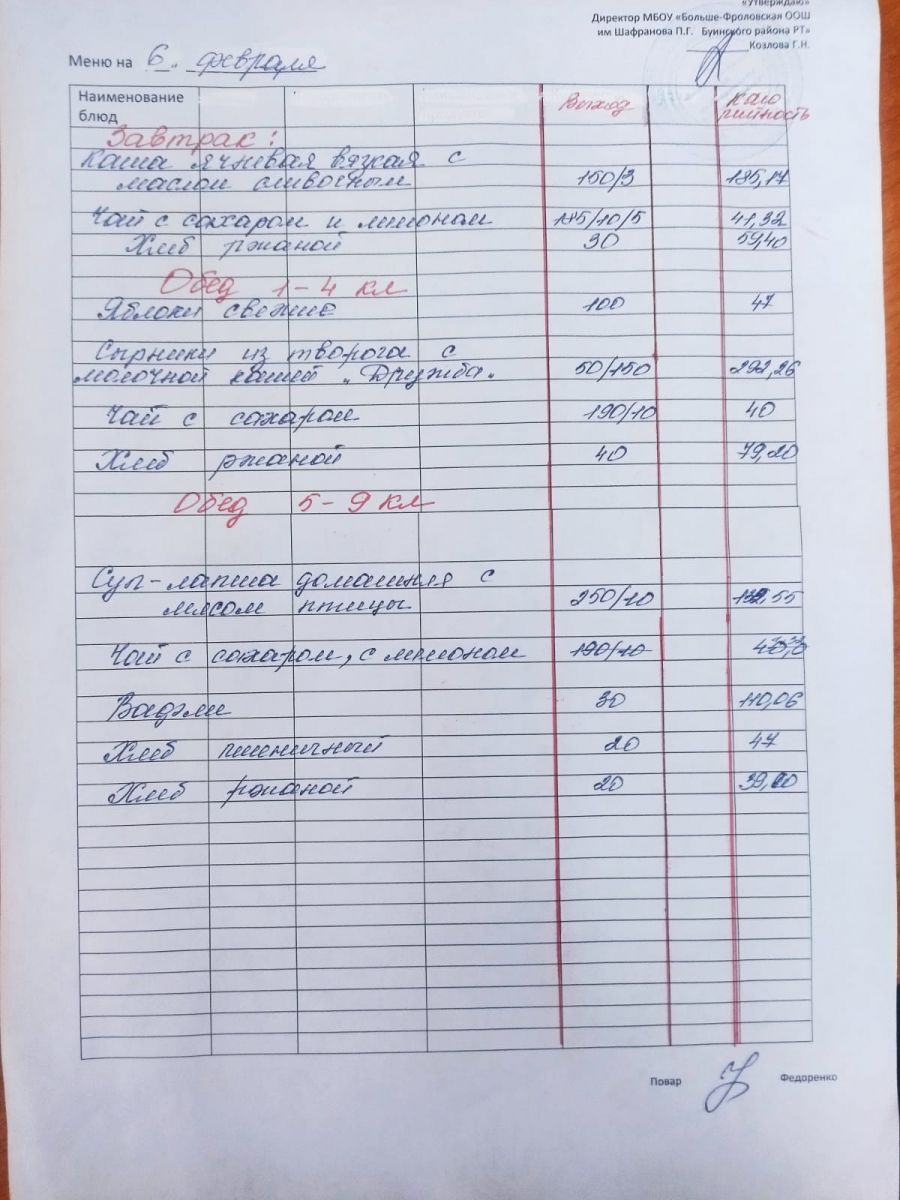 «Утверждаю»
Директор МБОУ «Больше-Фроловская ООШ
им Шафранова П.Г. Буинского района РТ»
Козлова Г.Н.
Меню на 6. февраля
Наименование блюд Выход Кало
рийность
Завтрак:
Каша ячневая вязкая с
маслом сливочным 150/3 185,17
Чай с сахаром и лимоном 185/10/5 41,32
Хлеб ржаной 30 59,40
Обед 1-4 кл
Яблоки свежие 100 47
Сырники из творога с
молочной кашей „Дружба" 50/150 292,26
Чай с сахаром 190/10 40
Хлеб ржаной 40 79,20
Обед 5-9 кл
Суп-лапша домашняя с
мясом птицы 250/10 ,55
Чай с сахаром, с лимоном 190/10
Вафли 30 110,06
Хлеб пшеничный 20 47
Хлеб ржаной 20
Повар Федоренко